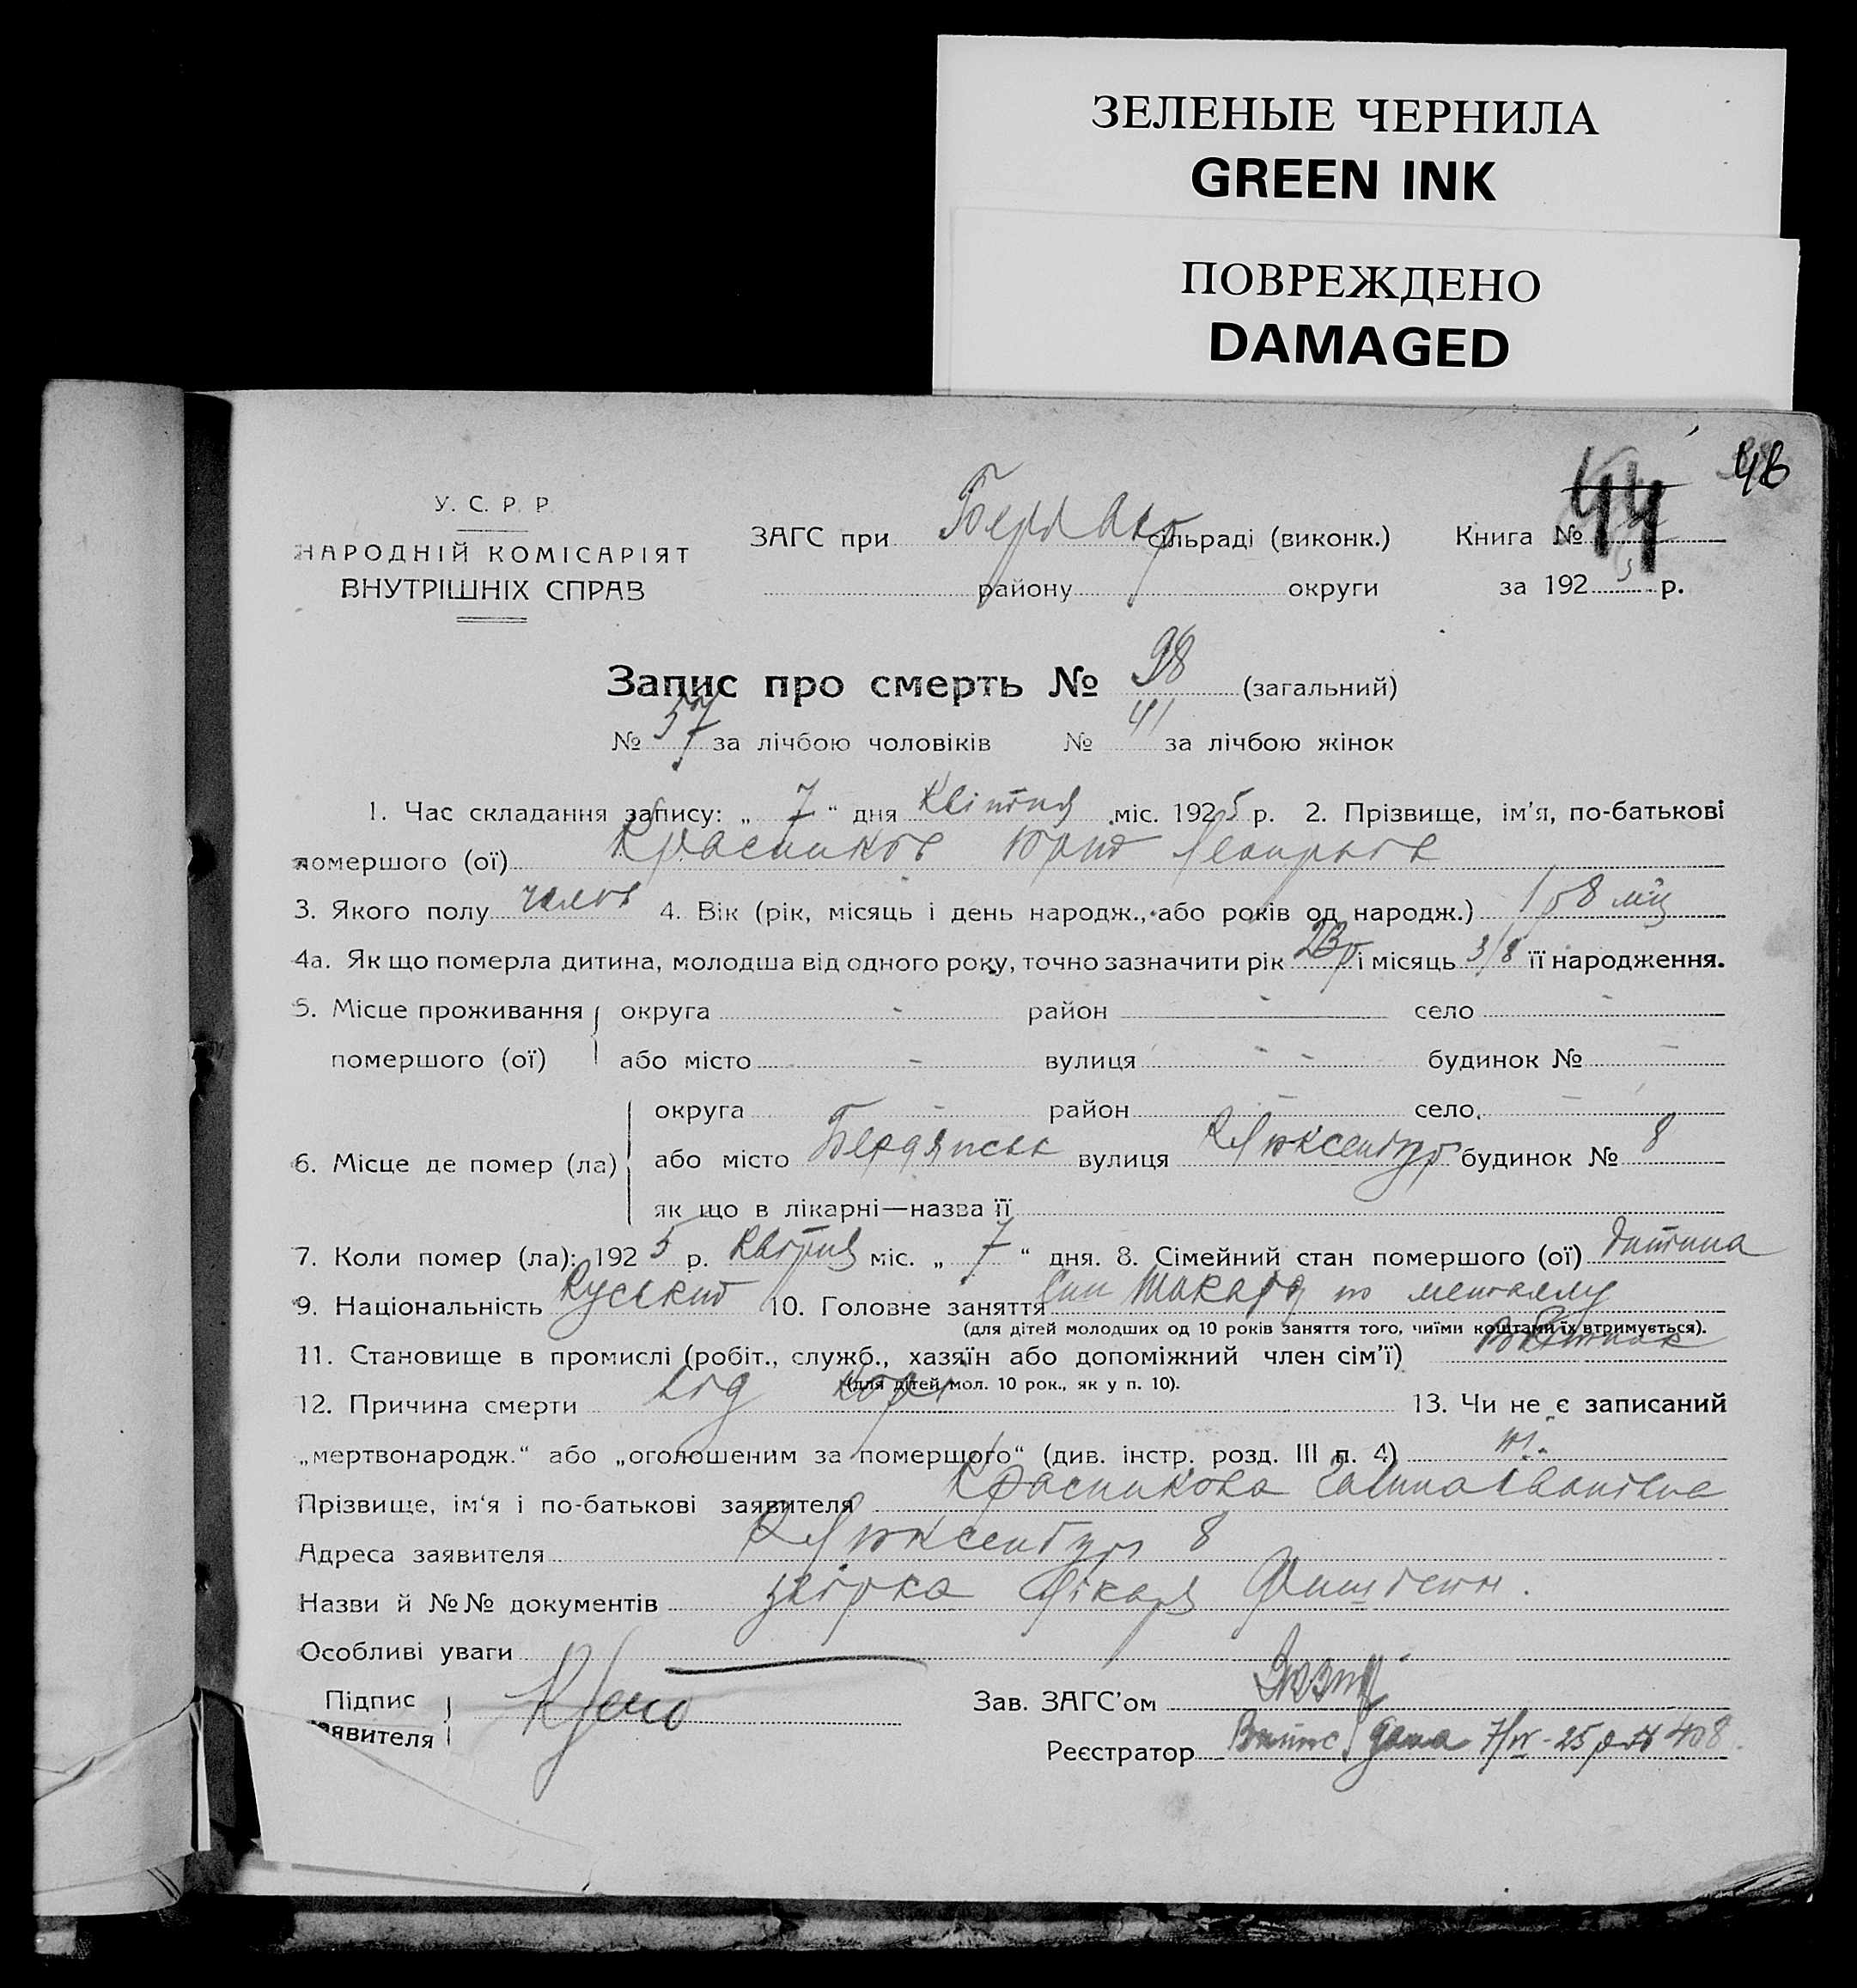 ЗЕЛЕНЫЕ ЧЕРНИЛА
GREEN INK
ПОВРЕЖДЕНО
DAMAGED
44 46
У. С. Р. Р.
НАРОДНІЙ КОМІСАРІЯТ
ВНУТРІШНІХ СПРАВ
ЗАГС при сільраді (виконк.) Книга №
району округи за 192 5 р.
Запис про смерть № 98 (загальний)
№ 57 за лічбою чоловіків № 41 за лічбою жінок
1. Час складання запису: „ 7 “ дня Квітня міс. 1925 р. 2. Прізвище, ім'я, по-батькові
помершого (ої) Красников Юрий
3. Якого полу чолов 4. Вік (рік, місяць і день народж., або років од народж.) 1 р 8 міц
4а. Як що померла дитина, молодша від одного року, точно зазначити рік 23р і місяць 3/8 її народження.
5. Місце проживання округа - район - село -
помершого (ої) або місто - вулиця - - будинок № -
округа - район - село -
6. Місце де помер (ла) або місто Бердянськ вулиця Р Люксембург будинок № 8
як що в лікарні—назва її
7. Коли помер (ла): 192 5 р. Квітня міс. „ 7 “ дня. 8. Сімейний стан помершого (ої) дитина
9. Національність Руський 10. Головне заняття син токаря по металлу
(для дітей молодших од 10 років заняття того, чиїми коштами їх втримується).
11. Становище в промислі (робіт., служб., хазяїн або допоміжний член сім'ї)
(для дітей мол. 10 рок., як у п. 10).
12. Причина смерти від кору 13. Чи не є записаний
„мертвонародж.“ або „оголошеним за помершого“ (див. інстр. розд. III п. 4) ні.
Прізвище, ім'я і по-батькові заявителя Красникова Галина Івановна
Адреса заявителя Р Люксембург 8
Назви й №№ документів лікаря
Особливі уваги
Підпис
заявителя
Зав. ЗАГС'ом
Реєстратор дана 7/IV-25 р 408